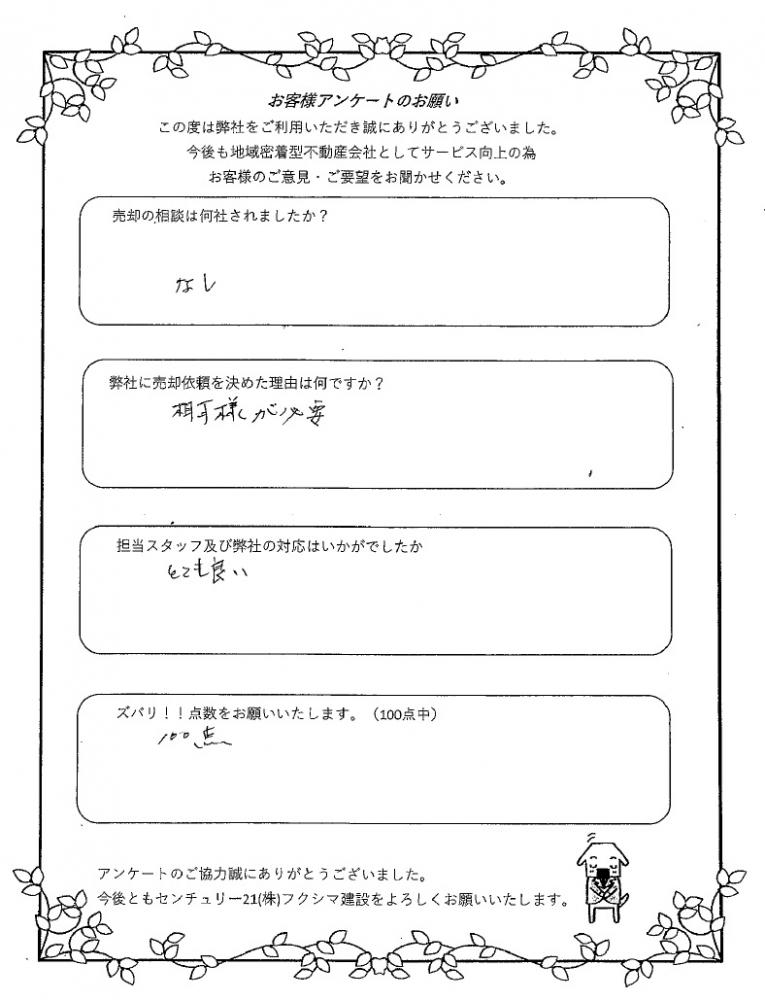 お客様アンケートのお願い
この度は弊社をご利用いただき誠にありがとうございました。
今後も地域密着型不動産会社としてサービス向上の為
お客様のご意見・ご要望をお聞かせください。
売却の相談は何社されましたか？
なし
弊社に売却依頼を決めた理由は何ですか？
相手様が必要
担当スタッフ及び弊社の対応はいかがでしたか
とても良い
ズバリ！！点数をお願いいたします。（100点中）
100点
アンケートのご協力誠にありがとうございました。
今後ともセンチュリー21(株)フクシマ建設をよろしくお願いいたします。